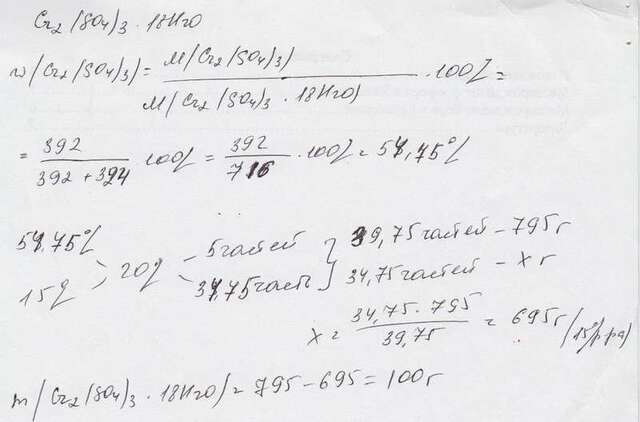 Cr₂(SO₄)₃ · 18H₂O
w(Cr₂(SO₄)₃) = M(Cr₂(SO₄)₃) / M(Cr₂(SO₄)₃ · 18H₂O) · 100% =
= 392 / 392 + 324 · 100% = 392 / 716 · 100% = 54,75%
54,75% 5 частей } 39,75 частей – 795 г
20%
15% 34,75 часть } 34,75 частей – x г
x = 34,75 · 795 / 39,75 = 695 г (15% р-ра)
m(Cr₂(SO₄)₃ · 18H₂O) = 795 – 695 = 100 г